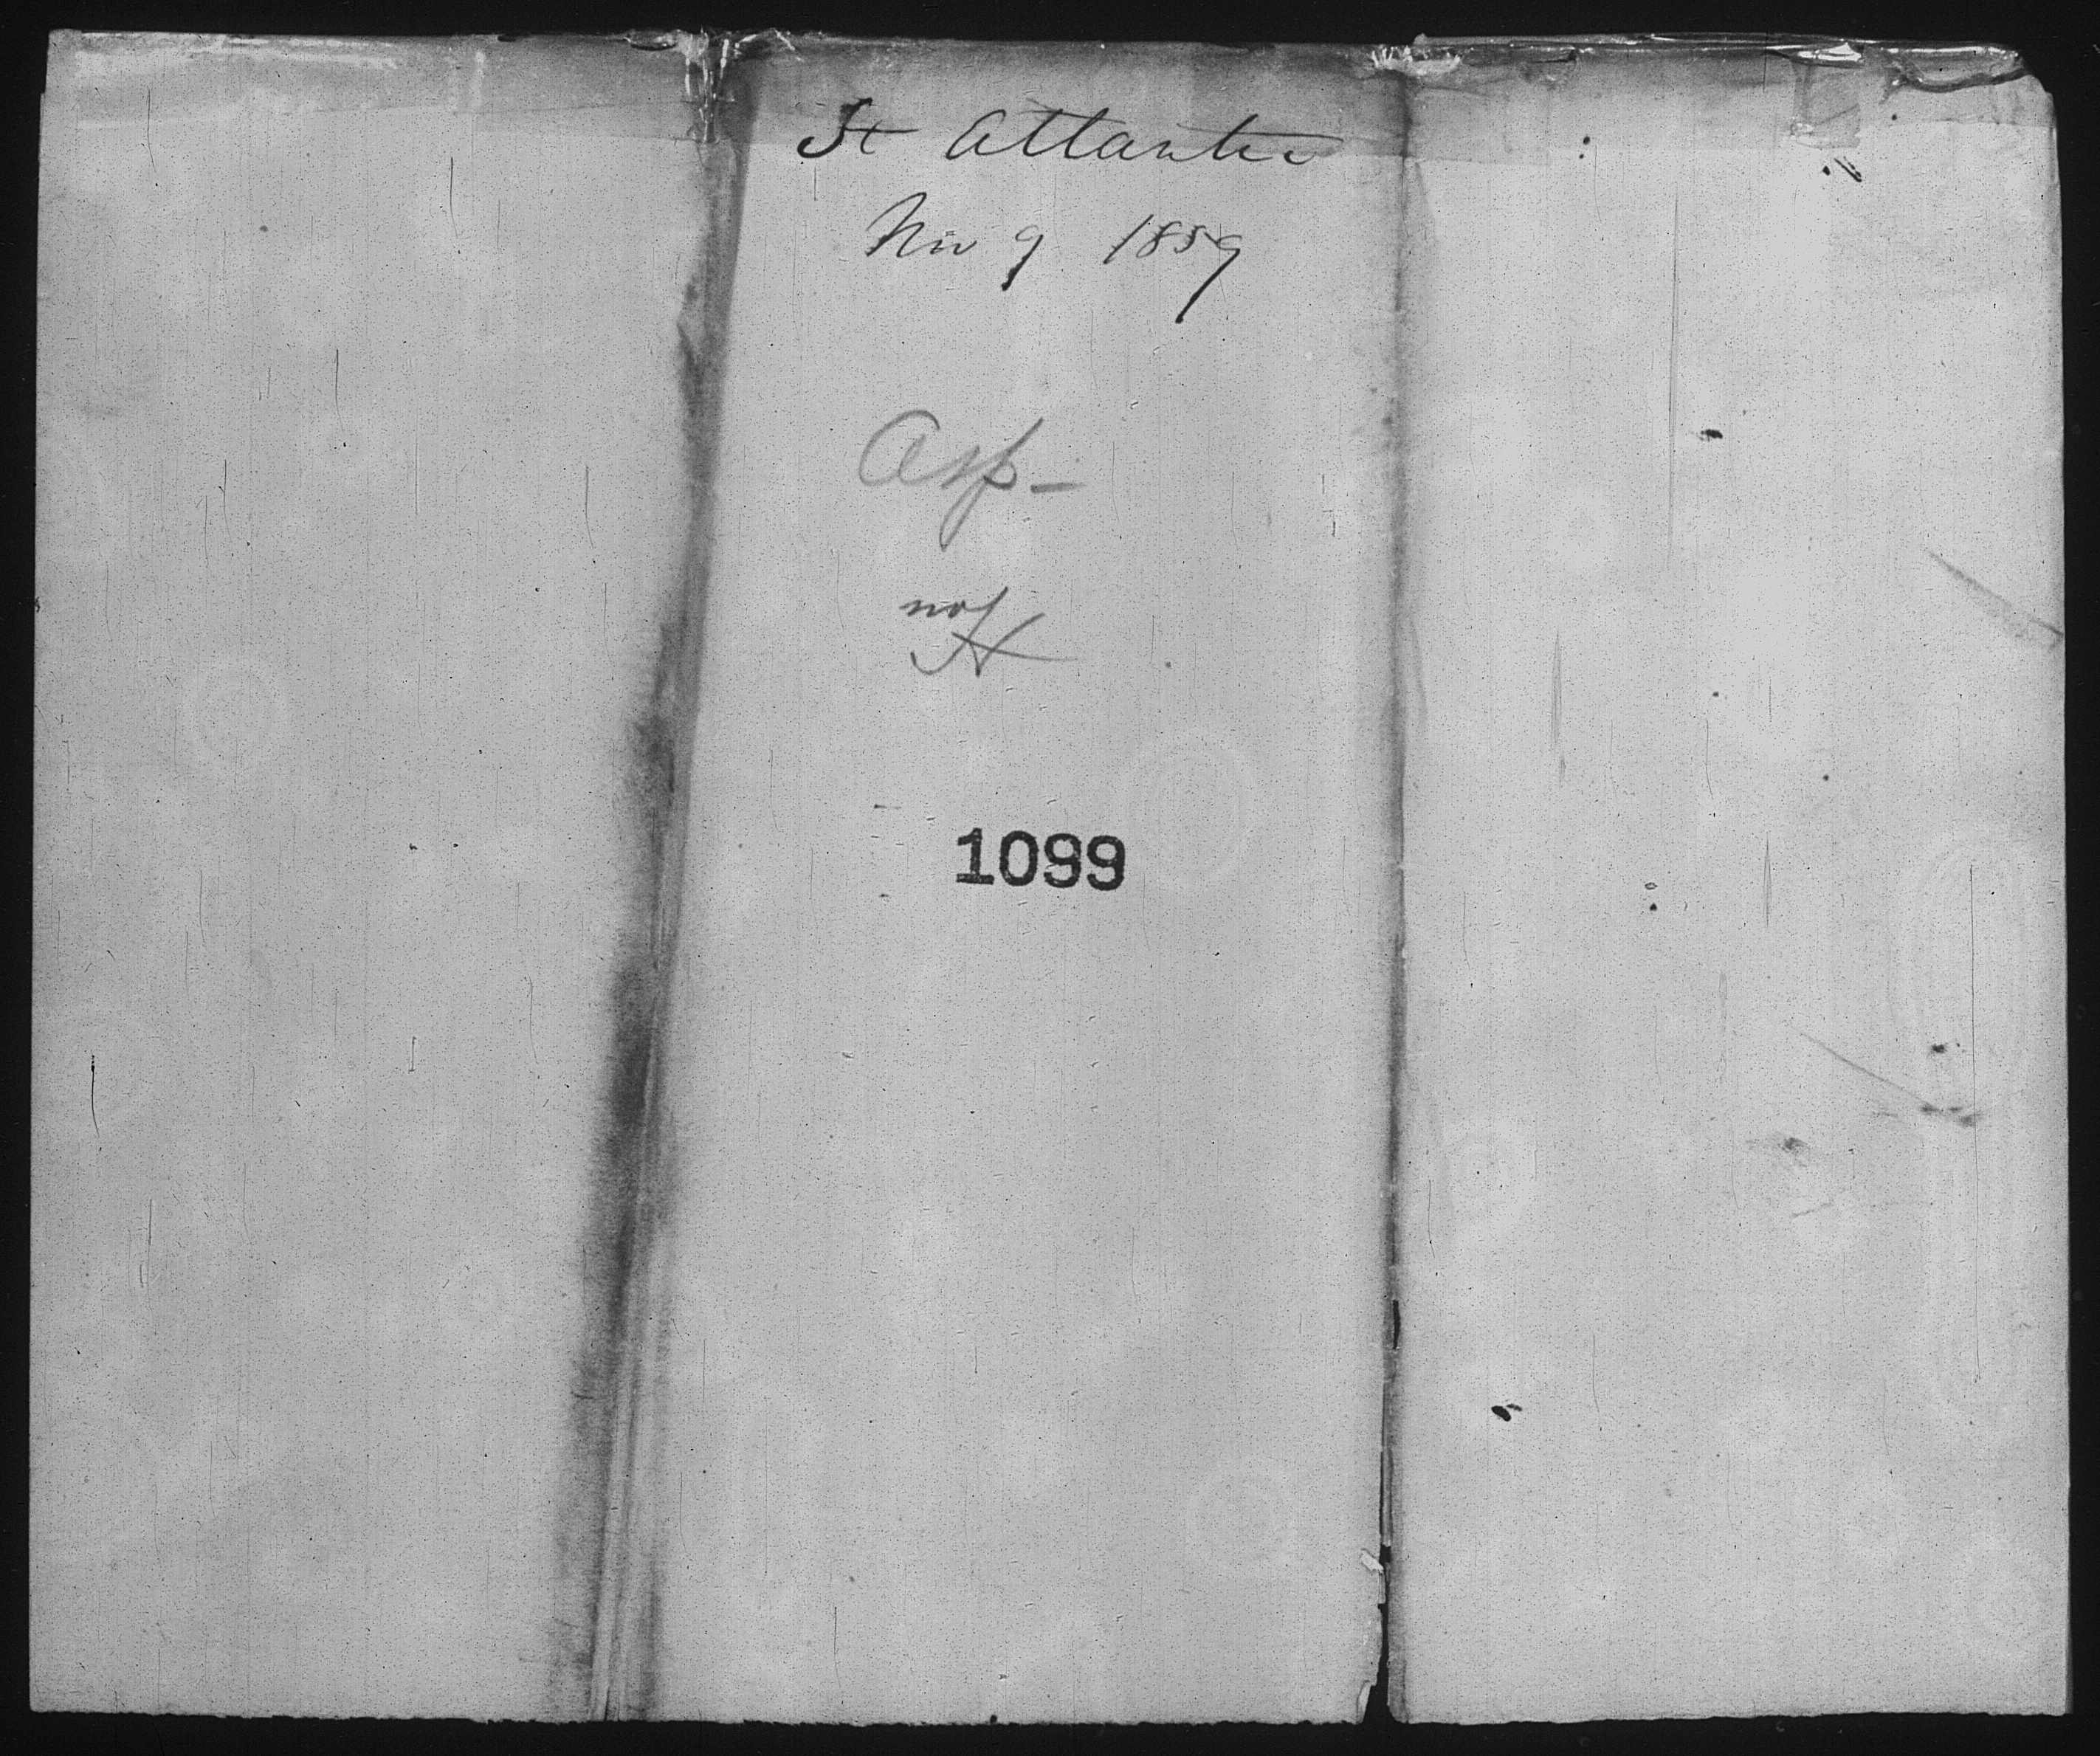 St Atlantic
Nov 9 1859
Asp-
not
1099